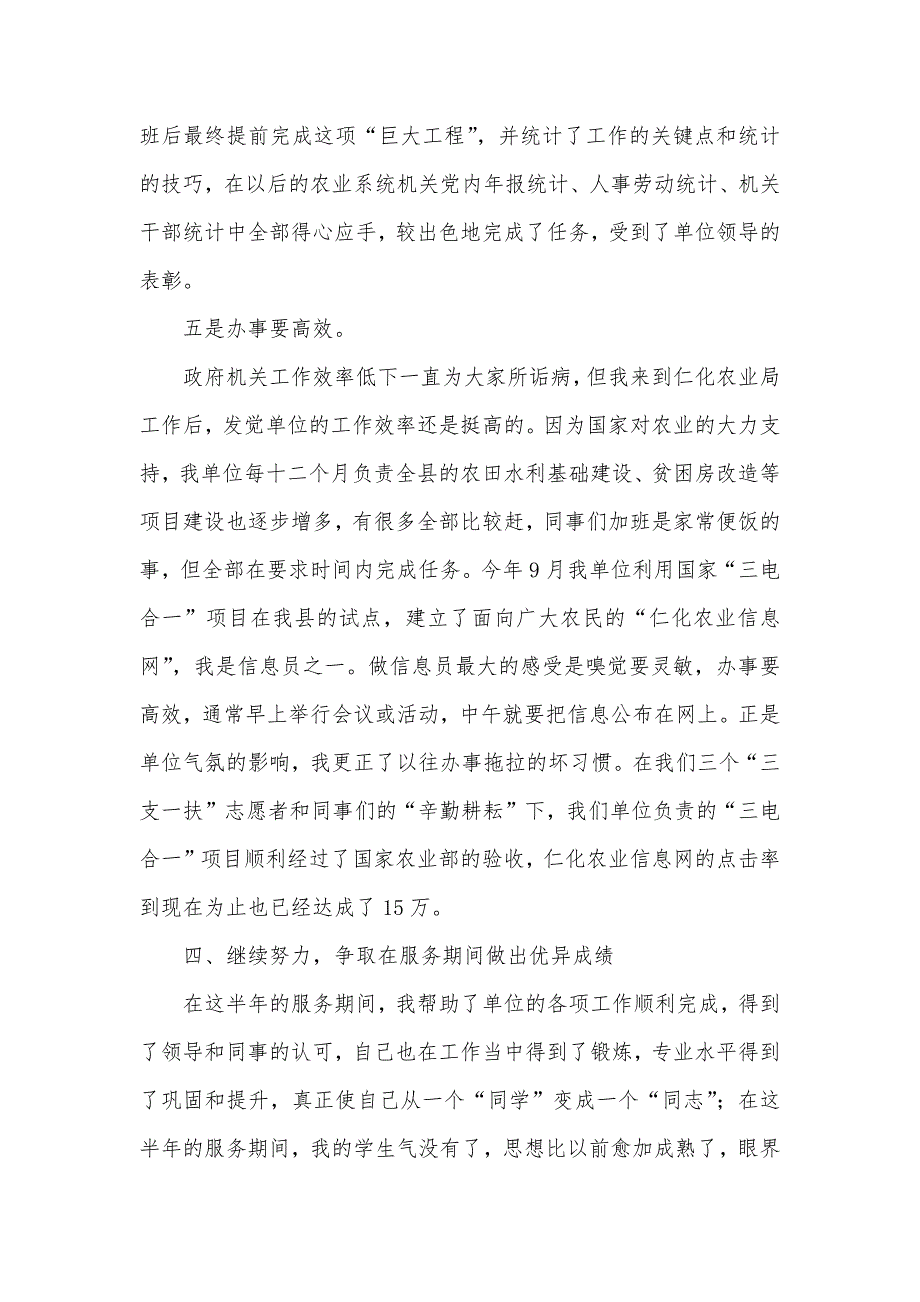 班后最终提前完成这项“巨大工程”，并统计了工作的关键点和统计
的技巧，在以后的农业系统机关党内年报统计、人事劳动统计、机关
干部统计中全部得心应手，较出色地完成了任务，受到了单位领导的
表彰。
五是办事要高效。
政府机关工作效率低下一直为大家所诟病，但我来到仁化农业局
工作后，发觉单位的工作效率还是挺高的。因为国家对农业的大力支
持，我单位每十二个月负责全县的农田水利基础建设、贫困房改造等
项目建设也逐步增多，有很多全部比较赶，同事们加班是家常便饭的
事，但全部在要求时间内完成任务。今年 9 月我单位利用国家“三电
合一”项目在我县的试点，建立了面向广大农民的“仁化农业信息
网”，我是信息员之一。做信息员最大的感受是嗅觉要灵敏，办事要
高效，通常早上举行会议或活动，中午就要把信息公布在网上。正是
单位气氛的影响，我更正了以往办事拖拉的坏习惯。在我们三个“三
支一扶”志愿者和同事们的“辛勤耕耘”下，我们单位负责的“三电
合一”项目顺利经过了国家农业部的验收，仁化农业信息网的点击率
到现在为止也已经达成了 15 万。
四、继续努力，争取在服务期间做出优异成绩
在这半年的服务期间，我帮助了单位的各项工作顺利完成，得到
了领导和同事的认可，自己也在工作当中得到了锻炼，专业水平得到
了巩固和提升，真正使自己从一个“同学”变成一个“同志”；在这
半年的服务期间，我的学生气没有了，思想比以前愈加成熟了，眼界